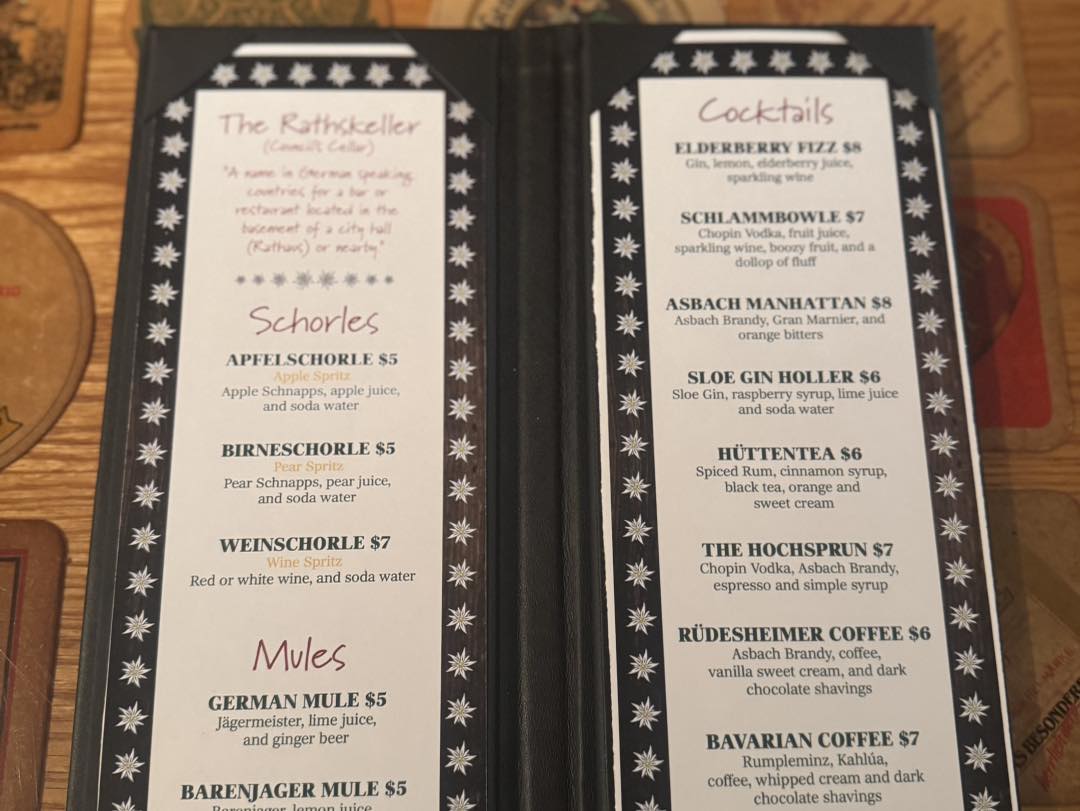 The Rathskeller
(Council's Cellar)
"A name in German speaking
countries for a bar or
restaurant located in the
basement of a city hall
(Rathaus) or nearby."
Schorles
APFELSCHORLE $5
Apple Spritz
Apple Schnapps, apple juice,
and soda water
BIRNESCHORLE $5
Pear Spritz
Pear Schnapps, pear juice,
and soda water
WEINSCHORLE $7
Wine Spritz
Red or white wine, and soda water
Mules
GERMAN MULE $5
Jägermeister, lime juice,
and ginger beer
BARENJAGER MULE $5
Barenjager, lemon juice
Cocktails
ELDERBERRY FIZZ $8
Gin, lemon, elderberry juice,
sparkling wine
SCHLAMMBOWLE $7
Chopin Vodka, fruit juice,
sparkling wine, boozy fruit, and a
dollop of fluff
ASBACH MANHATTAN $8
Asbach Brandy, Gran Marnier, and
orange bitters
SLOE GIN HOLLER $6
Sloe Gin, raspberry syrup, lime juice
and soda water
HÜTTENTEA $6
Spiced Rum, cinnamon syrup,
black tea, orange and
sweet cream
THE HOCHSPRUN $7
Chopin Vodka, Asbach Brandy,
espresso and simple syrup
RÜDESHEIMER COFFEE $6
Asbach Brandy, coffee,
vanilla sweet cream, and dark
chocolate shavings
BAVARIAN COFFEE $7
Rumpleminz, Kahlúa,
coffee, whipped cream and dark
chocolate shavings
BESONDER